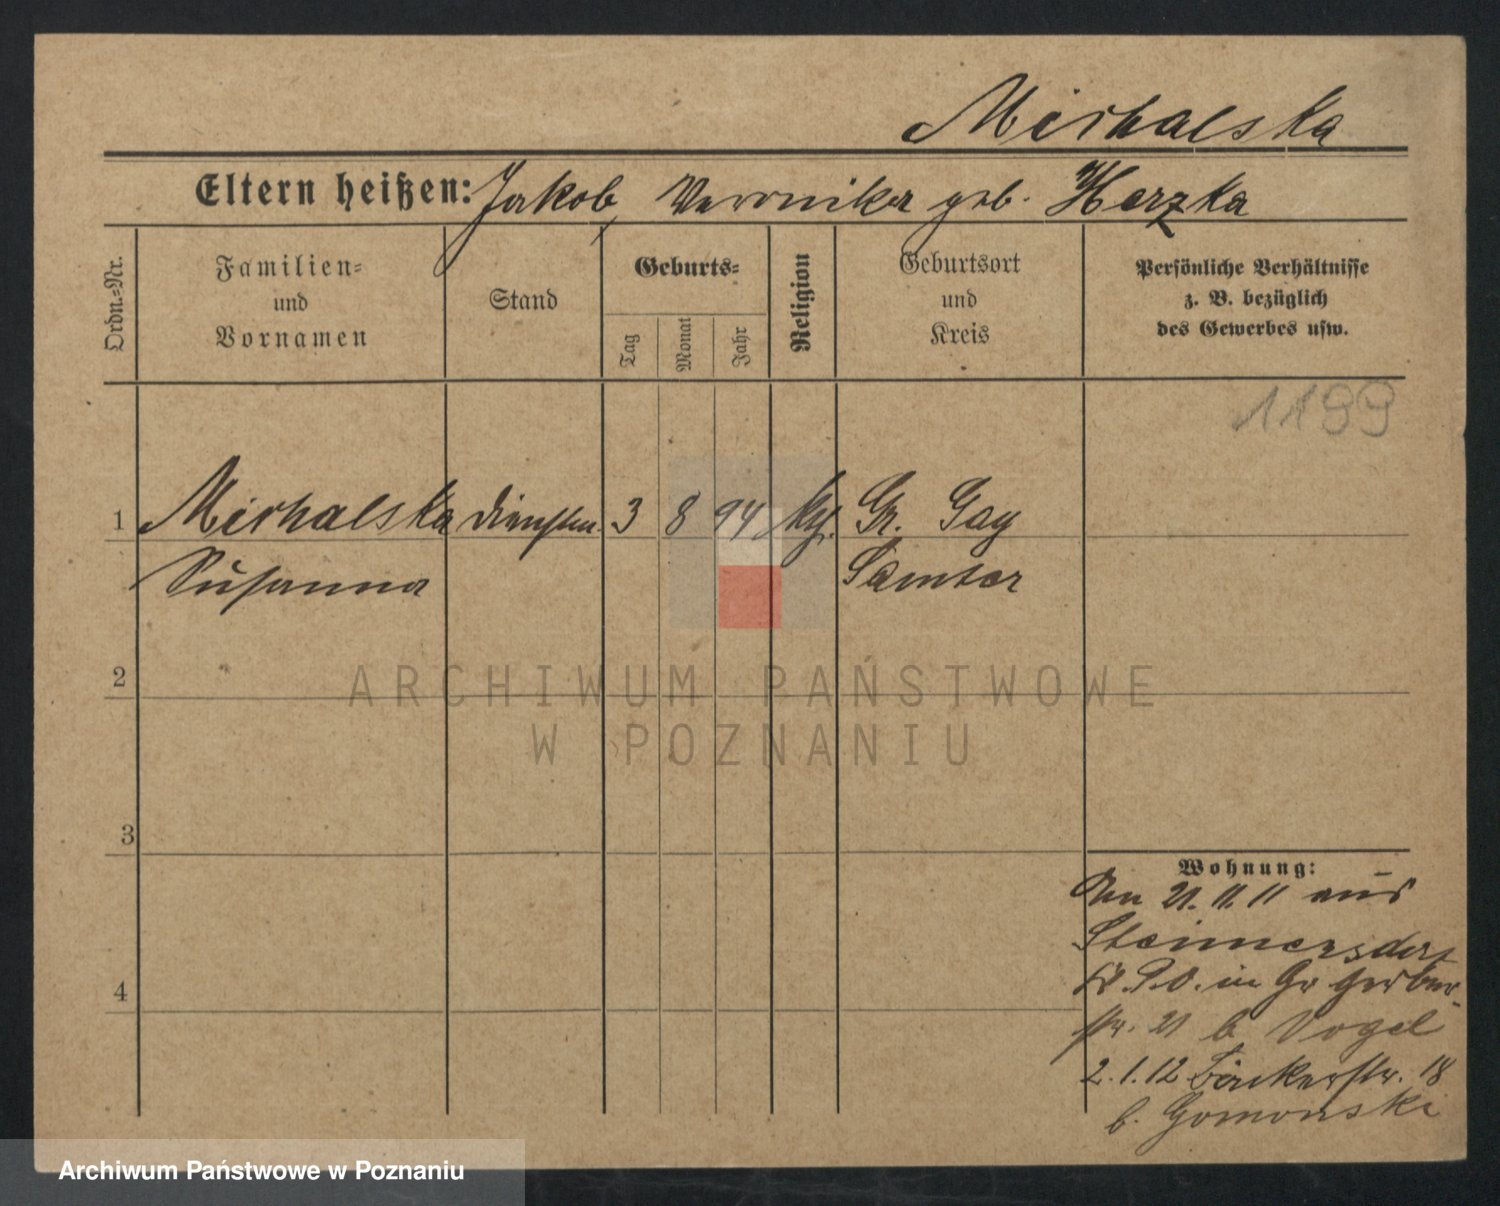 Michalska
Eltern heißen: Jakob, Veronika geb. Herzka
Ordn.=Nr.
Familien=
und
Vornamen
Stand
Geburts=
Tag
Monat
Jahr
Religion
Geburtsort
und
Kreis
Persönliche Verhältnisse
z. B. bezüglich
des Gewerbes usw.
1199
1 Michalska Dienstm. 3 8 94 kth. Gr. Gay
Susanna Samter
2
ARCHIWUM PAŃSTWOWE
W POZNANIU
3
Wohnung:
Am 21.11.11 aus
Steinnersdorf
P.O. in Gr Gerber-
str. 21 b Vogel
2.1.12 Bäckerstr. 18
b. Gomonski
4
Archiwum Państwowe w Poznaniu